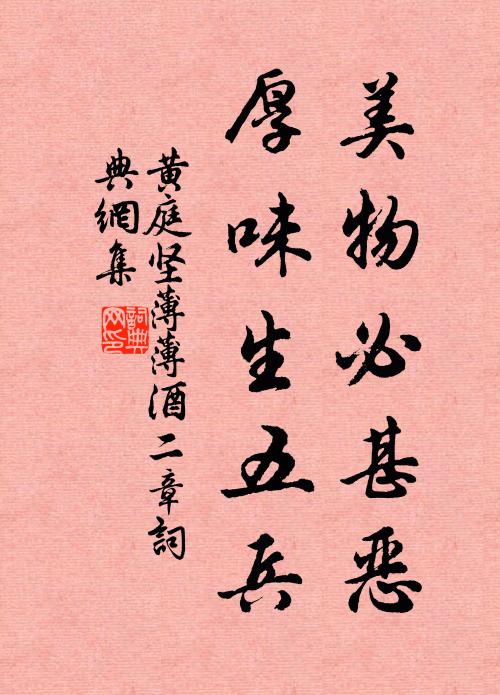 美物必甚惡
厚味生五兵
黄庭坚薄薄酒二章詞
典網集
詞典
网印